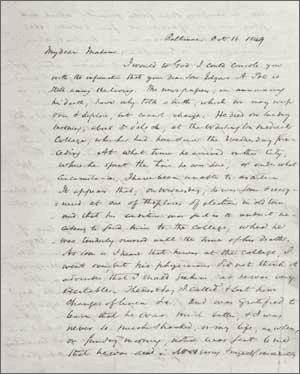 Baltimore, Oct. 11. 1849
My dear Madam,
I would to God I could console you
with the information that your dear Son Edgar A. Poe is
still among the living. The newspapers, in announcing
his death, have only told a truth, which we may weep
over & deplore, but cannot change. He died on Sunday
morning, about 5 o'clock, at the Washington Medical
College, where he had been since the Wednesday pre-
ceding. At what time he arrived in this city,
where he spent the time he was here, or under what
circumstances, I have been unable to ascertain.
It appears that, on Wednesday, he was seen & recog-
nized at one of the places of election in old town,
and that his condition was such as to render it ne-
cessary to send him to the college, where he
was tenderly nursed until the time of his death.
As soon as I heard that he was at the college, I
went over, but his physicians did not think it
advisable that I should see him, as he was very
excitable. The next day I called & sent him
changes of linen &c. And was gratified to
learn that he was much better, & I was
never so much shocked, in my life, as when,
on Sunday morning, notice was sent to me
that he was dead.